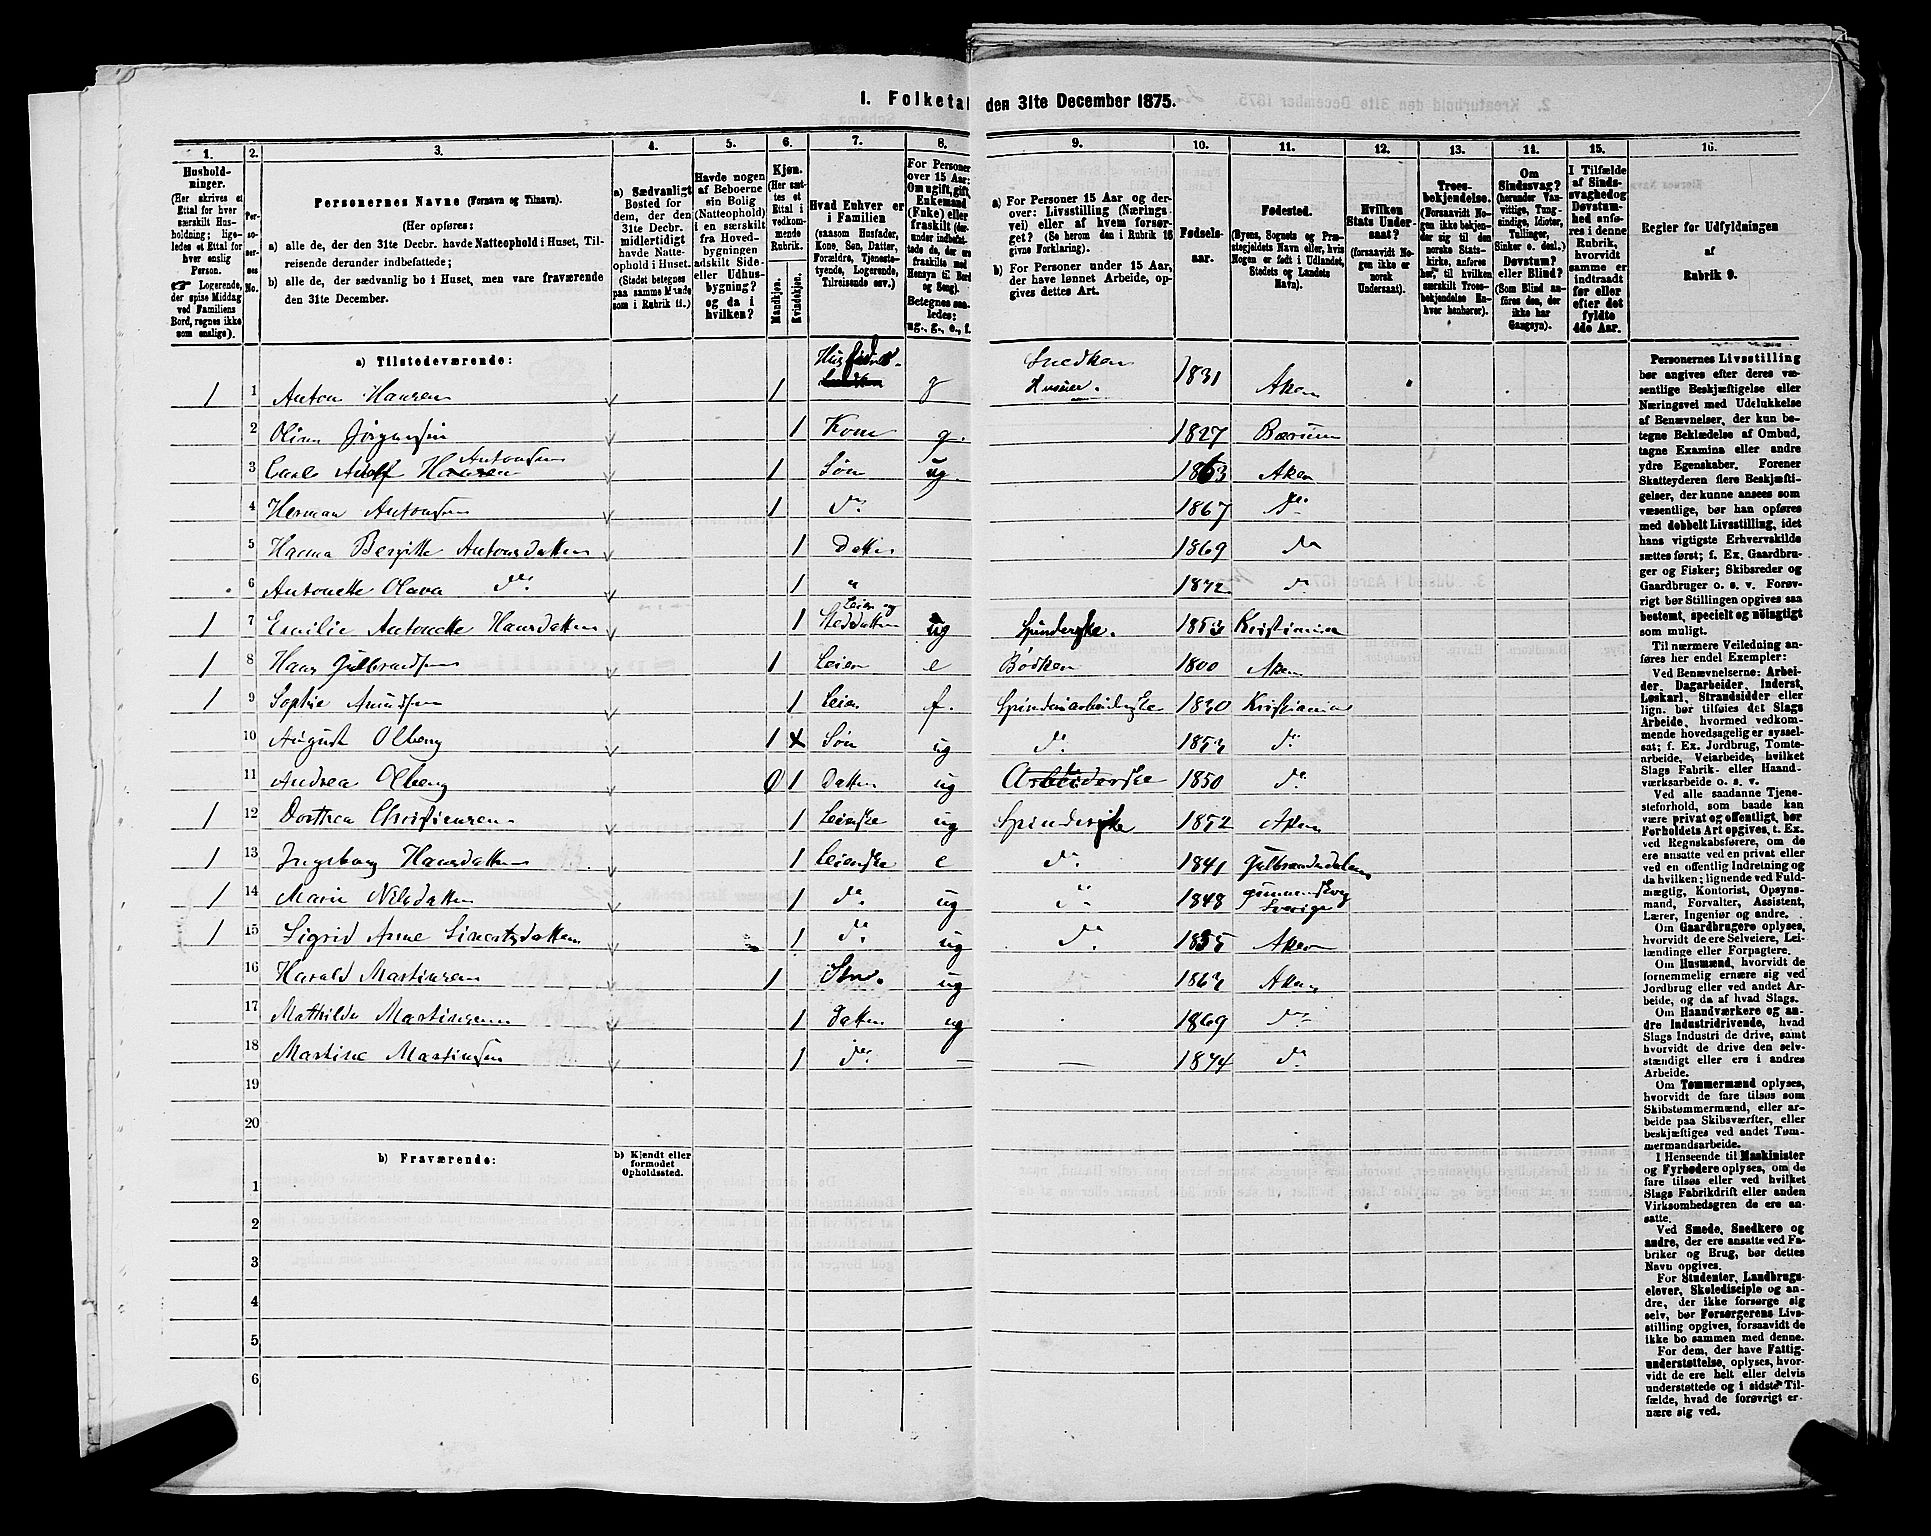 1. Folketal den 31te December 1875.
1. 2. 3. 4. 5. 6. 7. 8. 9. 10. 11. 12. 13. 14. 15. 16.
Husholdninger.
(Her skrives et Ettal for hver særskilt Husholdning; ligeledes et Ettal for hver enslig Person.
☞ Logerende, der spise Middag ved Familiens Bord, regnes ikke som enslige).
Personernes No.
Personernes Navne (Fornavn og Tilnavn).
(Her opføres:
a) alle de, der den 31te Decbr. havde Natteophold i Huset, Tilreisende derunder indbefattede;
b) alle de, der sædvanlig bo i Huset, men vare fraværende den 31te December.
a) Sædvanligt Bosted for dem, der den 31te Decbr. midlertidigt havde Natteophold i Huset.
(Stedet betegnes paa samme Maade som i Rubrik 11.)
Havde nogen af Beboerne sin Bolig (Natteophold) i en særskilt fra Hovedbygningen adskilt Side- eller Udhusbygning? og da i hvilken?
Kjøn.
(Her sættes et Ettal i vedkommende Rubrik.
Mandkjøn. Kvindekjøn.
Hvad Enhver er i Familien
(saasom Husfader, Kone, Søn, Datter, Forældre, Tjenestetyende, Logerende, Tilreisende osv.)
For Personer over 15 Aar: Om ugift, gift, Enkemand (Enke) eller fraskilt (derunder indbefattede de, der ere fraskilte med Hensyn til Bord og Seng).
Betegnes saaledes: ug., g., e., f.
a) For Personer 15 Aar og derover: Livsstilling (Næringsvei) eller af hvem forsørget? (Se herom den i Rubrik 16 givne Forklaring).
b) For Personer under 15 Aar, der have lønnet Arbeide, opgives dettes Art.
Fødselsaar.
Fødested.
(Byens, Sognets og Præstegjeldets Navn eller, hvis Nogen er født i Udlandet, Stedets og Landets Navn).
Hvilken Stats Undersaat?
(forsaavidt Nogen ikke er norsk Undersaat).
Troesbekjendelse.
(Forsaavidt Nogen ikke bekjender sig til den norske Statskirke, anføres her, til hvilken særskilt Troesbekjendelse Enhver henhører).
Om Sindssvag? (herunder Vanvittige, Tungsindige, Idioter, Tullinger, Sinker o. desl.) Døvstum? eller Blind? (Som Blind anføres den, der ikke har Gangsyn).
I Tilfælde af Sindssvaghed og Døvstumhed anføres i denne Rubrik, hvorvidt samme er indtraadt før eller efter det fyldte 4de Aar.
Regler for Udfyldningen af Rubrik 9.
a) Tilstedeværende:
1 1 Anton Hansen 1 Husfader g Snedker Huseier. 1831 Aker
2 Oline Jørgensen 1 Kone g. 1827 Bærum
3 Carl Adolf Hansen Antonsen 1 Søn ug 1863 Aker
4 Herman Antonsen 1 do 1867 do
5 Hanna Bergitte Antonsdatter 1 Datter 1869 do
6 Antonette Olava do 1 " 1872 do
1 7 Emilie Antonette Hansdatter 1 Leier og Steddatter ug Spinderske. 1853 Kristiania
1 8 Hans Gulbrandsen 1 Leier e Bødker 1800 Aker
1 9 Sophie Amundsen 1 Leier f. Spinderiarbeiderske 1830 Kristiania
10 August Olberg 1 Søn ug do 1853 do
11 Andrea Olberg 0 1 Datter ug Arbeiderske 1850 do
1 12 Dorthea Christiansen 1 Leierske ug Spinderske 1852 Aker
1 13 Ingeborg Hansdatter 1 Leierske e do 1841 Gulbrandsdalen
1 14 Marie Nilsdatter 1 do ug " 1848 Sverige
1 15 Sigrid Anne 1 do ug do 1855 Aker
16 Harald Martinsen 1 Søn. ug 1863 Aker
17 Mathilde Martinsen 1 Datter ug 1869 do
18 Martine Martinsen 1 do — — 1874 do
19
20
b) Fraværende: b) Kjendt eller formodet Opholdssted.
1
2
3
4
5
6
Personernes Livsstilling bør angives efter deres væsentlige Beskjæftigelse eller Næringsvei med Udelukkelse af Benævnelser, der kun betegne Beklædelse af Ombud, tagne Examina eller andre ydre Egenskaber. Forener Skatteyderen flere Beskjæftigelser, der kunne ansees som væsentlige, bør han opføres med dobbelt Livsstilling, idet hans vigtigste Erhvervskilde sættes først; f. Ex. Gaardbruger og Fisker; Skibsreder og Gaardbruger o. s. v. Forøvrigt bør Stillingen opgives saa bestemt, specielt og nøiagtigt som muligt.
Til nærmere Veiledning anføres her endel Exempler:
Ved Benævnelserne: Arbeider, Dagarbeider, Inderst, Løskarl, Strandsidder eller lign. bør tilføies det Slags Arbeide, hvormed vedkommende hovedsagelig er sysselsat; f. Ex. Jordbrug, Tomtearbeide, Veiarbeide, hvilket Slags Fabrik- eller Haandværksarbeide o. s. v.
Ved alle saadanne Tjenesteforhold, som baade kan være privat og offentligt, bør Forholdets Art opgives, t. Ex. ved Regnskabsførere, om de ere ansatte ved en privat eller ved en offentlig Indretning og da hvilken; lignende ved Fuldmægtig, Kontorist, Opsynsmand, Forvalter, Assistent, Lærer, Ingeniør og andre.
Om Gaardbrugere oplyses, hvorvidt de ere Selveiere, Leilændinge eller Forpagtere.
Om Husmænd, hvorvidt de fornemmelig ernære sig ved Jordbrug eller ved andet Arbeide, og da af hvad Slags.
Om Haandværkere og andre Industridrivende, hvad Slags Industri de drive, samt hvorvidt de drive den selvstændigt eller ere i andres Arbeide.
Om Tømmermænd oplyses, hvorvidt de fare tilsøs som Skibstømmermænd, eller arbeide paa Skibsværfter, eller beskjæftiges ved andet Tømmermandsarbeide.
I Henseende til Maskinister og Fyrbødere oplyses, om de fare tilsøs eller ved hvilket Slags Fabrikdrift eller anden Virksomhedsgren de ere ansatte.
Ved Smede, Snedkere og andre, der ere ansatte ved Fabriker og Brug, bør dettes Navn opgives.
For Studenter, Landbrugselever, Skoledisciple og andre, der ikke forsørge sig selv, bør Forsørgerens Livsstilling opgives, forsaavidt de ikke bo sammen med denne.
For dem, der have Fattigunderstøttelse, oplyses, hvorvidt de ere helt eller delvis understøttede og i sidste Tilfælde, hvad de forøvrigt ernære sig ved.